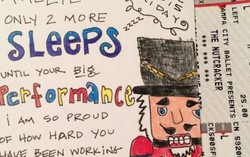 ONLY 2 MORE
SLEEPS
UNTIL YOUR BIG
PERFORMANCE
I AM SO PROUD
OF HOW HARD YOU
HAVE BEEN WORKING
LEFT
TAMPA CITY BALLET PRESENTS
THE NUTCRACKER
25.00